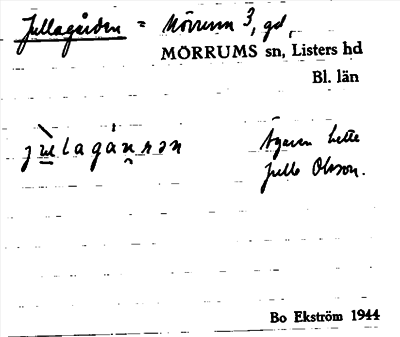 Jullagården = Mörrum 3, gd,
MÖRRUMS sn, Listers hd
Bl. län
Ägaren hette
Julle Olsson.
Bo Ekström 1944